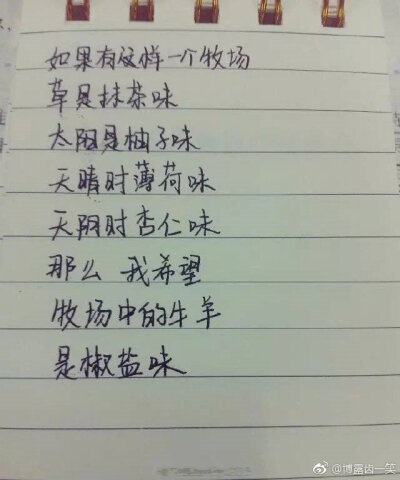 如果有这样一个牧场
草是抹茶味
太阳是柚子味
天晴时薄荷味
天阴时杏仁味
那么 我希望
牧场中的牛羊
是椒盐味
@博露齿一笑